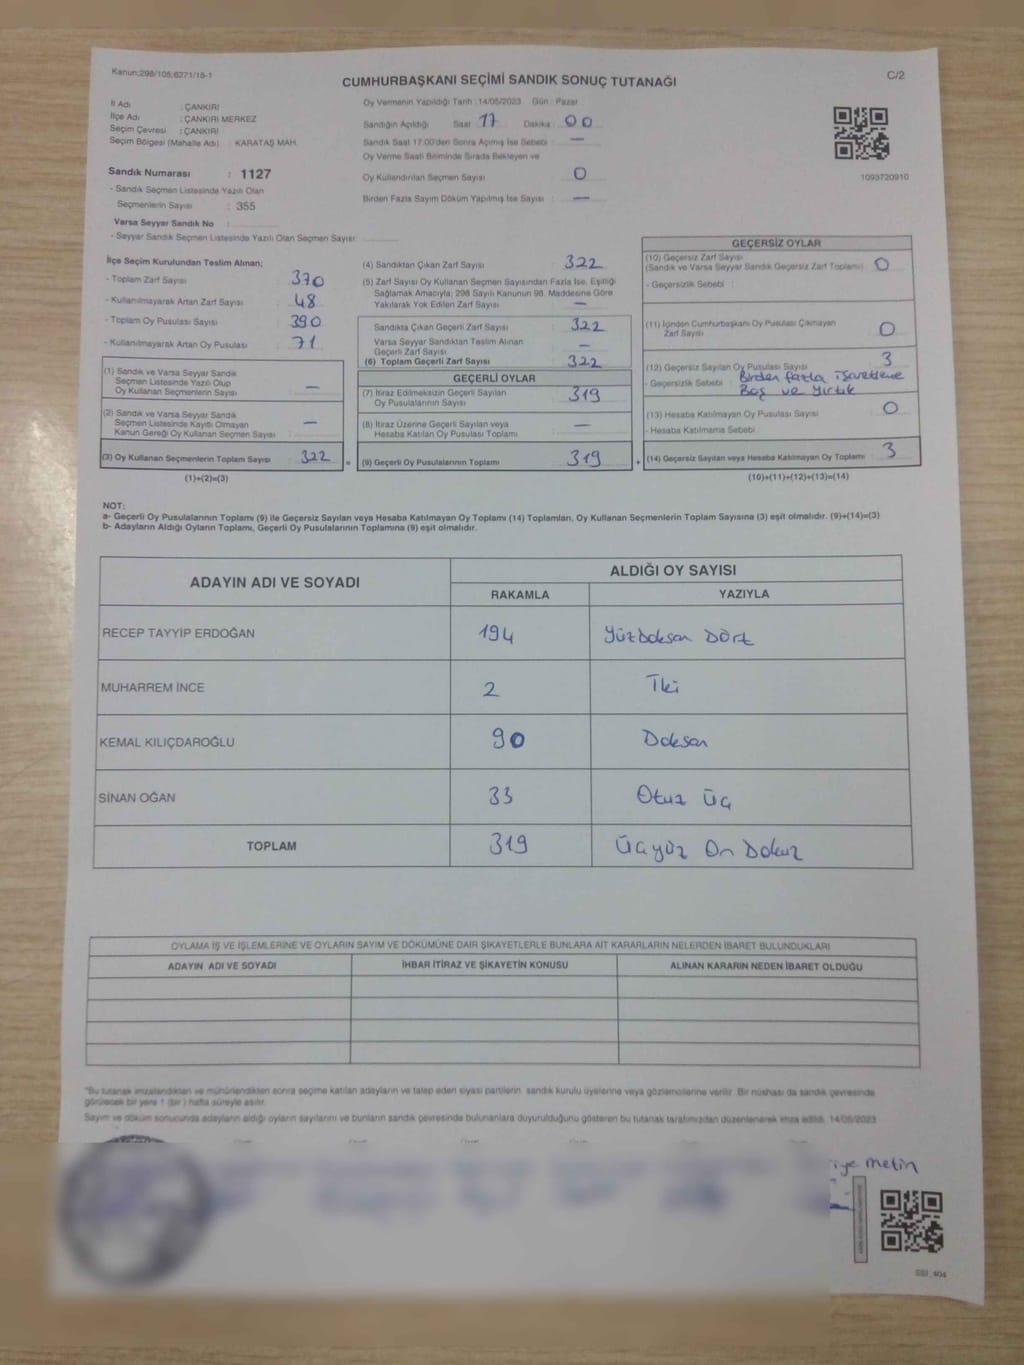 Kanun:298/105;6271/18-1
C/2
CUMHURBAŞKANI SEÇİMİ SANDIK SONUÇ TUTANAĞI
İl Adı : ÇANKIRI
İlçe Adı : ÇANKIRI MERKEZ
Seçim Çevresi : ÇANKIRI
Seçim Bölgesi (Mahalle Adı) : KARATAŞ MAH.
Sandık Numarası : 1127
- Sandık Seçmen Listesinde Yazılı Olan
Seçmenlerin Sayısı : 355
Varsa Seyyar Sandık No :
- Seyyar Sandık Seçmen Listesinde Yazılı Olan Seçmen Sayısı:
Oy Vermenin Yapıldığı Tarih :14/05/2023 Gün : Pazar
Sandığın Açıldığı Saat 17 Dakika 00
Sandık Saat 17.00'den Sonra Açımış İse Sebebi : —
Oy Verme Saati Bitiminde Sırada Bekleyen ve
Oy Kullandırılan Seçmen Sayısı : 0
Birden Fazla Sayım Döküm Yapılmış İse Sayısı : —
1093720910
İlçe Seçim Kurulundan Teslim Alınan;
- Toplam Zarf Sayısı : 370
- Kullanılmayarak Artan Zarf Sayısı : 48
- Toplam Oy Pusulası Sayısı : 390
- Kullanılmayarak Artan Oy Pusulası : 71
(1) Sandık ve Varsa Seyyar Sandık
Seçmen Listesinde Yazılı Olup
Oy Kullanan Seçmenlerin Sayısı : —
(2) Sandık ve Varsa Seyyar Sandık
Seçmen Listesinde Kayıtlı Olmayan
Kanun Gereği Oy Kullanan Seçmen Sayısı : —
(3) Oy Kullanan Seçmenlerin Toplam Sayısı : 322
(1)+(2)=(3)
(4) Sandıktan Çıkan Zarf Sayısı : 322
(5) Zarf Sayısı Oy Kullanan Seçmen Sayısından Fazla İse, Eşitliği
Sağlamak Amacıyla; 298 Sayılı Kanunun 98. Maddesine Göre
Yakılarak Yok Edilen Zarf Sayısı : —
Sandıkta Çıkan Geçerli Zarf Sayısı : 322
Varsa Seyyar Sandıktan Teslim Alınan
Geçerli Zarf Sayısı : —
(6) Toplam Geçerli Zarf Sayısı : 322
GEÇERLİ OYLAR
(7) İtiraz Edilmeksizin Geçerli Sayılan
Oy Pusulalarının Sayısı : 319
(8) İtiraz Üzerine Geçerli Sayılan veya
Hesaba Katılan Oy Pusulası Toplamı : —
= (9) Geçerli Oy Pusulalarının Toplamı : 319 +
GEÇERSİZ OYLAR
(10) Geçersiz Zarf Sayısı
(Sandık ve Varsa Seyyar Sandık Geçersiz Zarf Toplamı) : 0
- Geçersizlik Sebebi :
(11) İçinden Cumhurbaşkanı Oy Pusulası Çıkmayan
Zarf Sayısı : 0
(12) Geçersiz Sayılan Oy Pusulası Sayısı : 3
- Geçersizlik Sebebi : Birden fazla işaretleme
Boş ve Yırtık
(13) Hesaba Katılmayan Oy Pusulası Sayısı : 0
- Hesaba Katılmama Sebebi :
(14) Geçersiz Sayılan veya Hesaba Katılmayan Oy Toplamı : 3
(10)+(11)+(12)+(13)=(14)
NOT:
a- Geçerli Oy Pusulalarının Toplamı (9) ile Geçersiz Sayılan veya Hesaba Katılmayan Oy Toplamı (14) Toplamları, Oy Kullanan Seçmenlerin Toplam Sayısına (3) eşit olmalıdır. (9)+(14)=(3)
b- Adayların Aldığı Oyların Toplamı, Geçerli Oy Pusulalarının Toplamına (9) eşit olmalıdır.
ADAYIN ADI VE SOYADI
ALDIĞI OY SAYISI
RAKAMLA YAZIYLA
RECEP TAYYİP ERDOĞAN 194 Yüzdoksan Dört
MUHARREM İNCE 2 İki
KEMAL KILIÇDAROĞLU 90 Doksan
SİNAN OĞAN 33 Otuz Üç
TOPLAM 319 Üçyüz On Dokuz
OYLAMA İŞ VE İŞLEMLERİNE VE OYLARIN SAYIM VE DÖKÜMÜNE DAİR ŞİKAYETLERLE BUNLARA AİT KARARLARIN NELERDEN İBARET BULUNDUKLARI
ADAYIN ADI VE SOYADI İHBAR İTİRAZ VE ŞİKAYETİN KONUSU ALINAN KARARIN NEDEN İBARET OLDUĞU
"Bu tutanak imzalandıktan ve mühürlendikten sonra seçime katılan adayların ve talep eden siyasi partilerin sandık kurulu üyelerine veya gözlemcilerine verilir. Bir nüshası da sandık çevresinde
görülecek bir yere 1 (bir) hafta süreyle asılır.
Sayım ve döküm sonucunda adayların aldığı oyların sayılarını ve bunların sandık çevresinde bulunanlara duyurulduğunu gösteren bu tutanak tarafımızdan düzenlenerek imza edildi. 14/05/2023
Metin
SSI_404